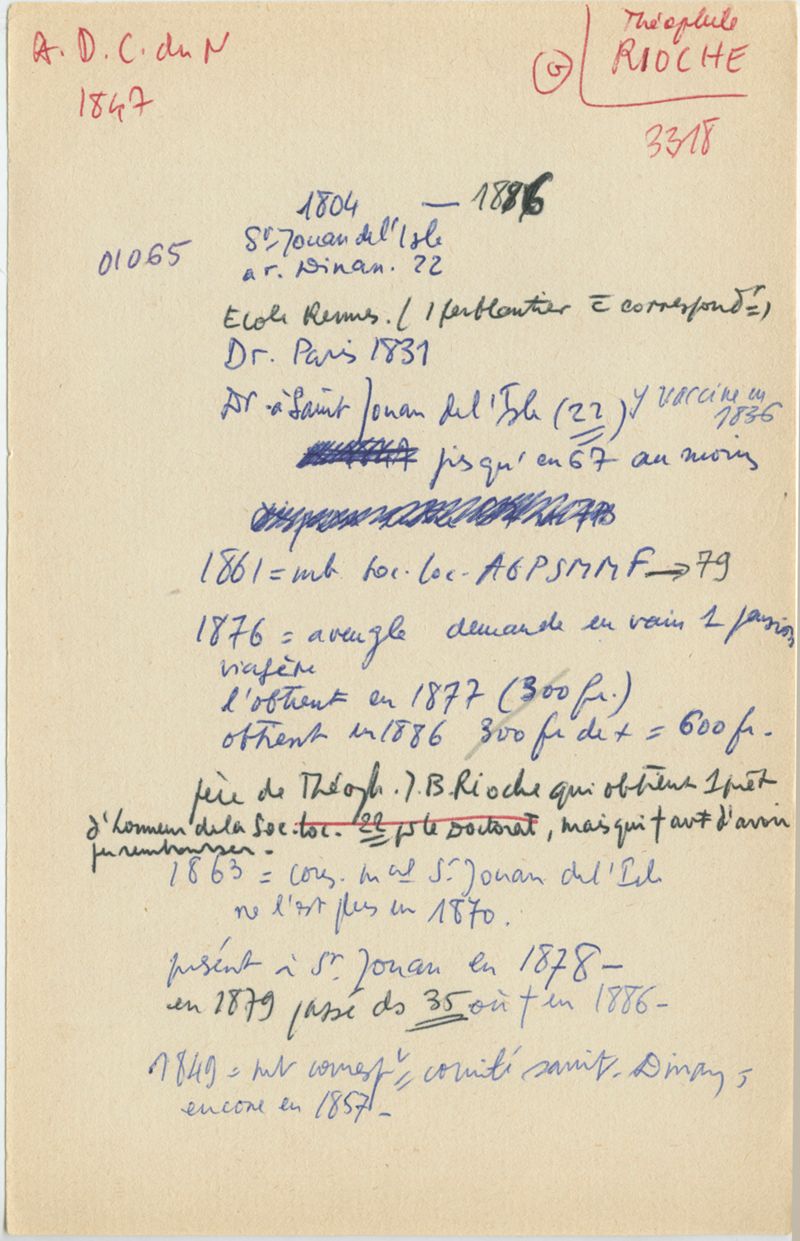 A. D. C. du N
1847
Théophile
G RIOCHE
3318
1804 — 1886
01065
St Jouan de l'Isle
ar. Dinan. 22
Ecole Rennes. (1 ferblantier = correspondt)
Dr. Paris 1831
Dr à Saint Jouan de l'Isle (22) y vaccine en
1836
jusqu'en 67 au moins
1861 = mb Soc. loc. AGPSMMF → 79
1876 = aveugle demande en vain 1 pension
viagère
l'obtient en 1877 (300 fr.)
obtient en 1886 300 fr de + = 600 fr.
père de Théoph. J. B. Rioche qui obtient 1 prêt
d'honneur de la Soc. loc. 22 pr le Doctorat, mais qui † avt d'avoir
pu rembourser.
1863 = cons. mal St Jouan de l'Isle
ne l'est plus en 1870.
présent à St. Jouan en 1878 –
en 1879 passé ds 35 où † en 1886 –
1849 = mb correspt comité sanit. Dinan,
encore en 1857 –